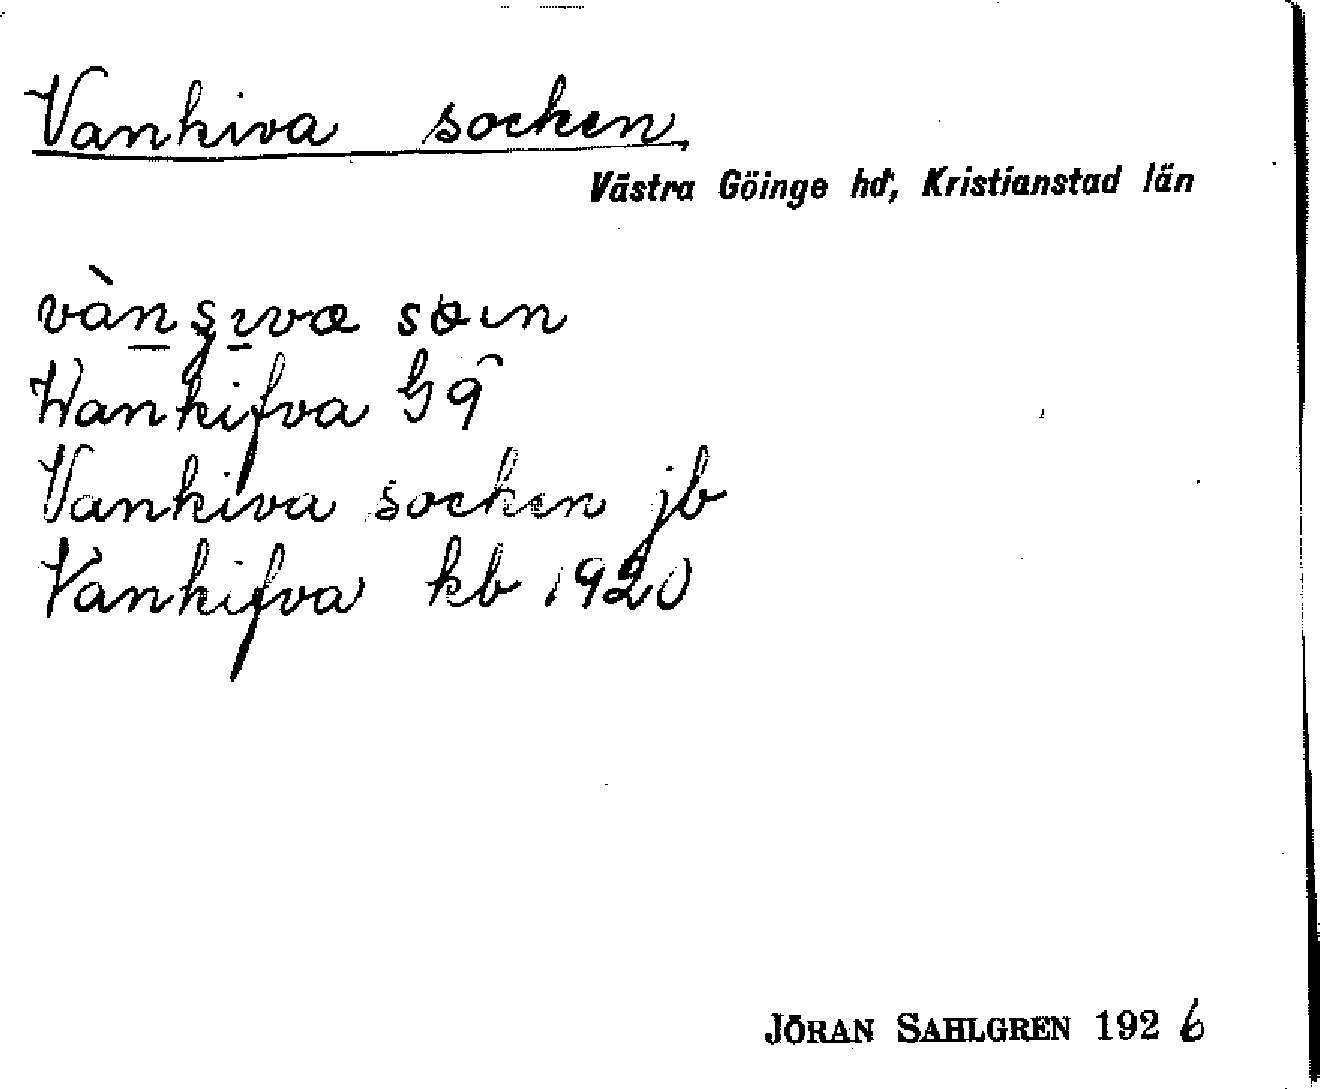 Vankiva socken
Västra Göinge hd, Kristianstad län
socken
Wankifva G 9
Vankiva socken jb
Vankifva kb 1920
JÖRAN SAHLGREN 1926